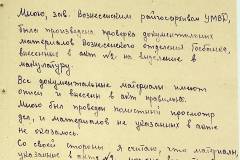 Мною, зав. Вознесенским райгосархивом УМВД,
была произведена проверка документальных
материалов Вознесенского отделения Госбанка,
внесенные в акт №2 на выделение в
макулатуру.
Все документальные материалы имеют
описи и внесены в акт правильно.
Мною был проведен полистный просмотр
дел, и материалов не указанных в акте
не оказалось.
Со своей стороны я считаю, что материалы,
указанные в акте №2